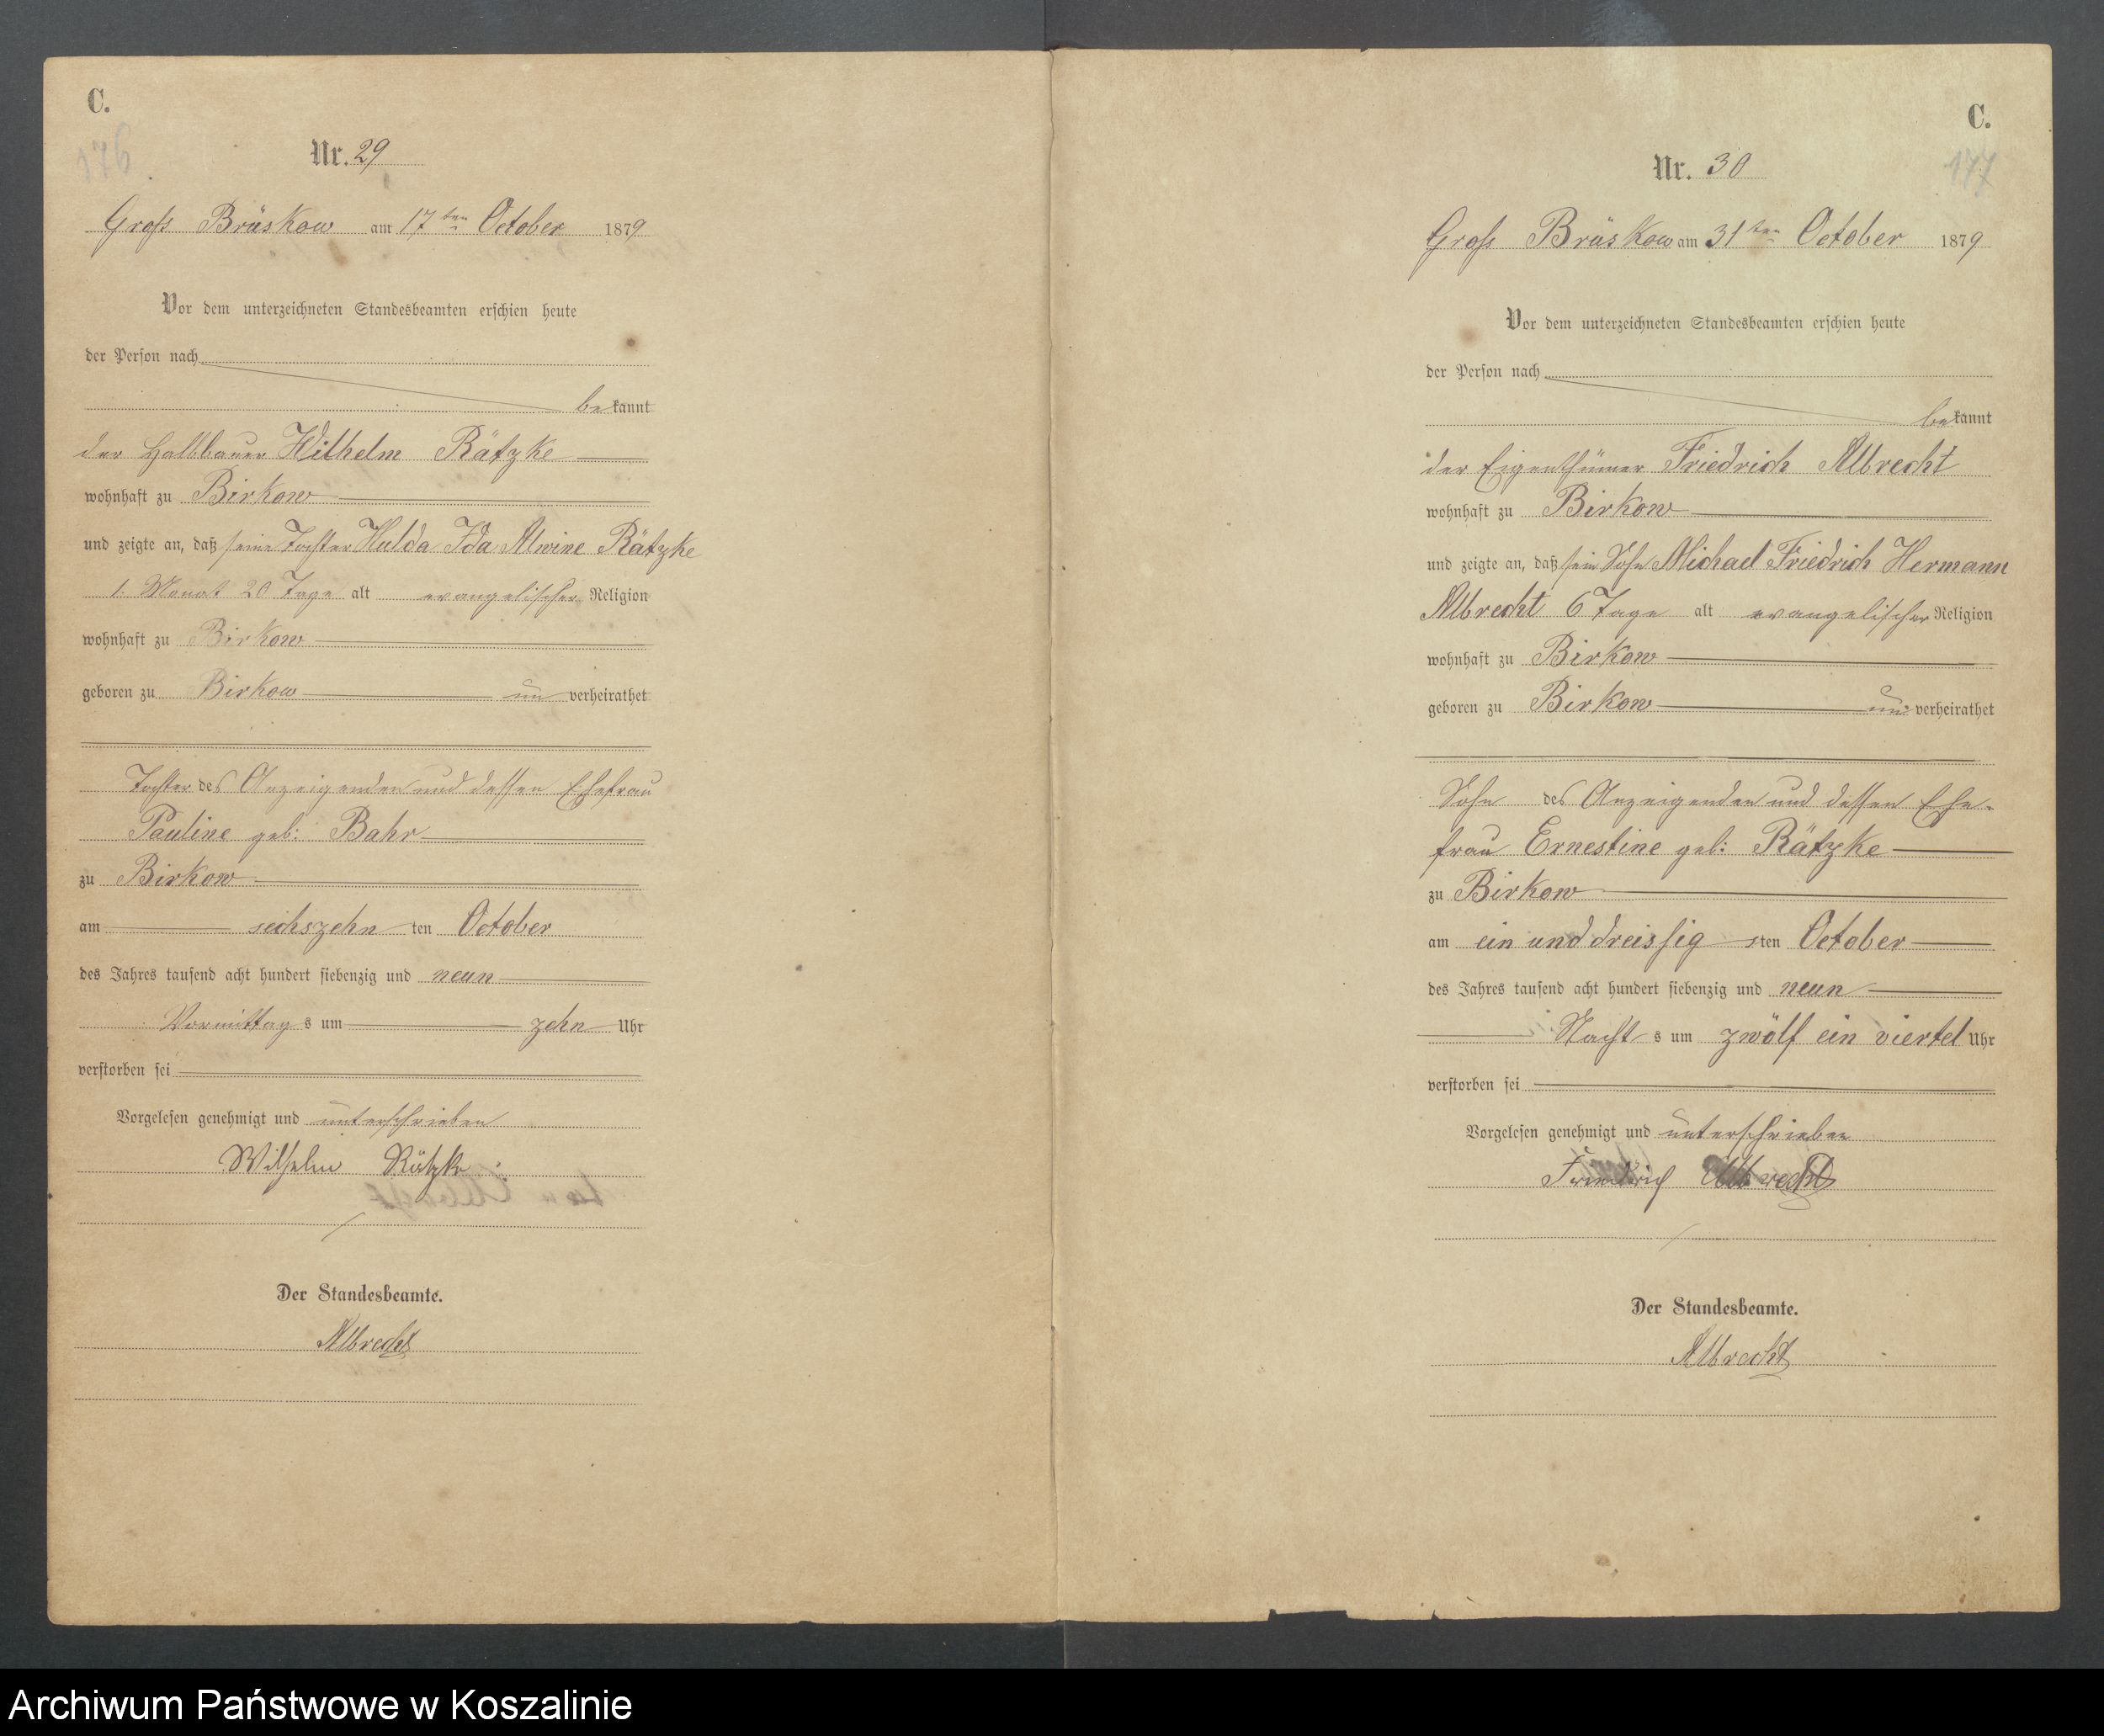 C.
176
Nr. 29
Groß Brüskow am 17ten October 1879
Vor dem unterzeichneten Standesbeamten erschien heute
der Person nach
bekannt
der Halbbauer Wilhelm Rätzke
wohnhaft zu Birkow
und zeigte an, daß seine Tochter Hulda Ida Alwine Rätzke
1. Monat 20 Tage alt evangelischer Religion
wohnhaft zu Birkow
geboren zu Birkow un verheirathet
Tochter des Anzeigenden und dessen Ehefrau
Pauline geb: Bahr
zu Birkow
am sechszehn ten October
des Jahres tausend acht hundert siebenzig und neun
Vormittag s um zehn Uhr
verstorben sei
Vorgelesen genehmigt und unterschrieben
Wilhelm Rätzke
Der Standesbeamte.
Albrecht
C.
177
Nr. 30
Groß Brüskow am 31ten October 1879
Vor dem unterzeichneten Standesbeamten erschien heute
der Person nach
bekannt
der Eigenthümer Friedrich Albrecht
wohnhaft zu Birkow
und zeigte an, daß sein Sohn Michael Friedrich Hermann
Albrecht 6 Tage alt evangelischer Religion
wohnhaft zu Birkow
geboren zu Birkow un verheirathet
Sohn des Anzeigenden und dessen Ehe-
frau Ernestine geb: Rätzke
zu Birkow
am ein und dreissig sten October
des Jahres tausend acht hundert siebenzig und neun
Nacht s um zwölf ein viertel Uhr
verstorben sei
Vorgelesen genehmigt und unterschrieben
Friedrich Albrecht
Der Standesbeamte.
Albrecht
Archiwum Państwowe w Koszalinie